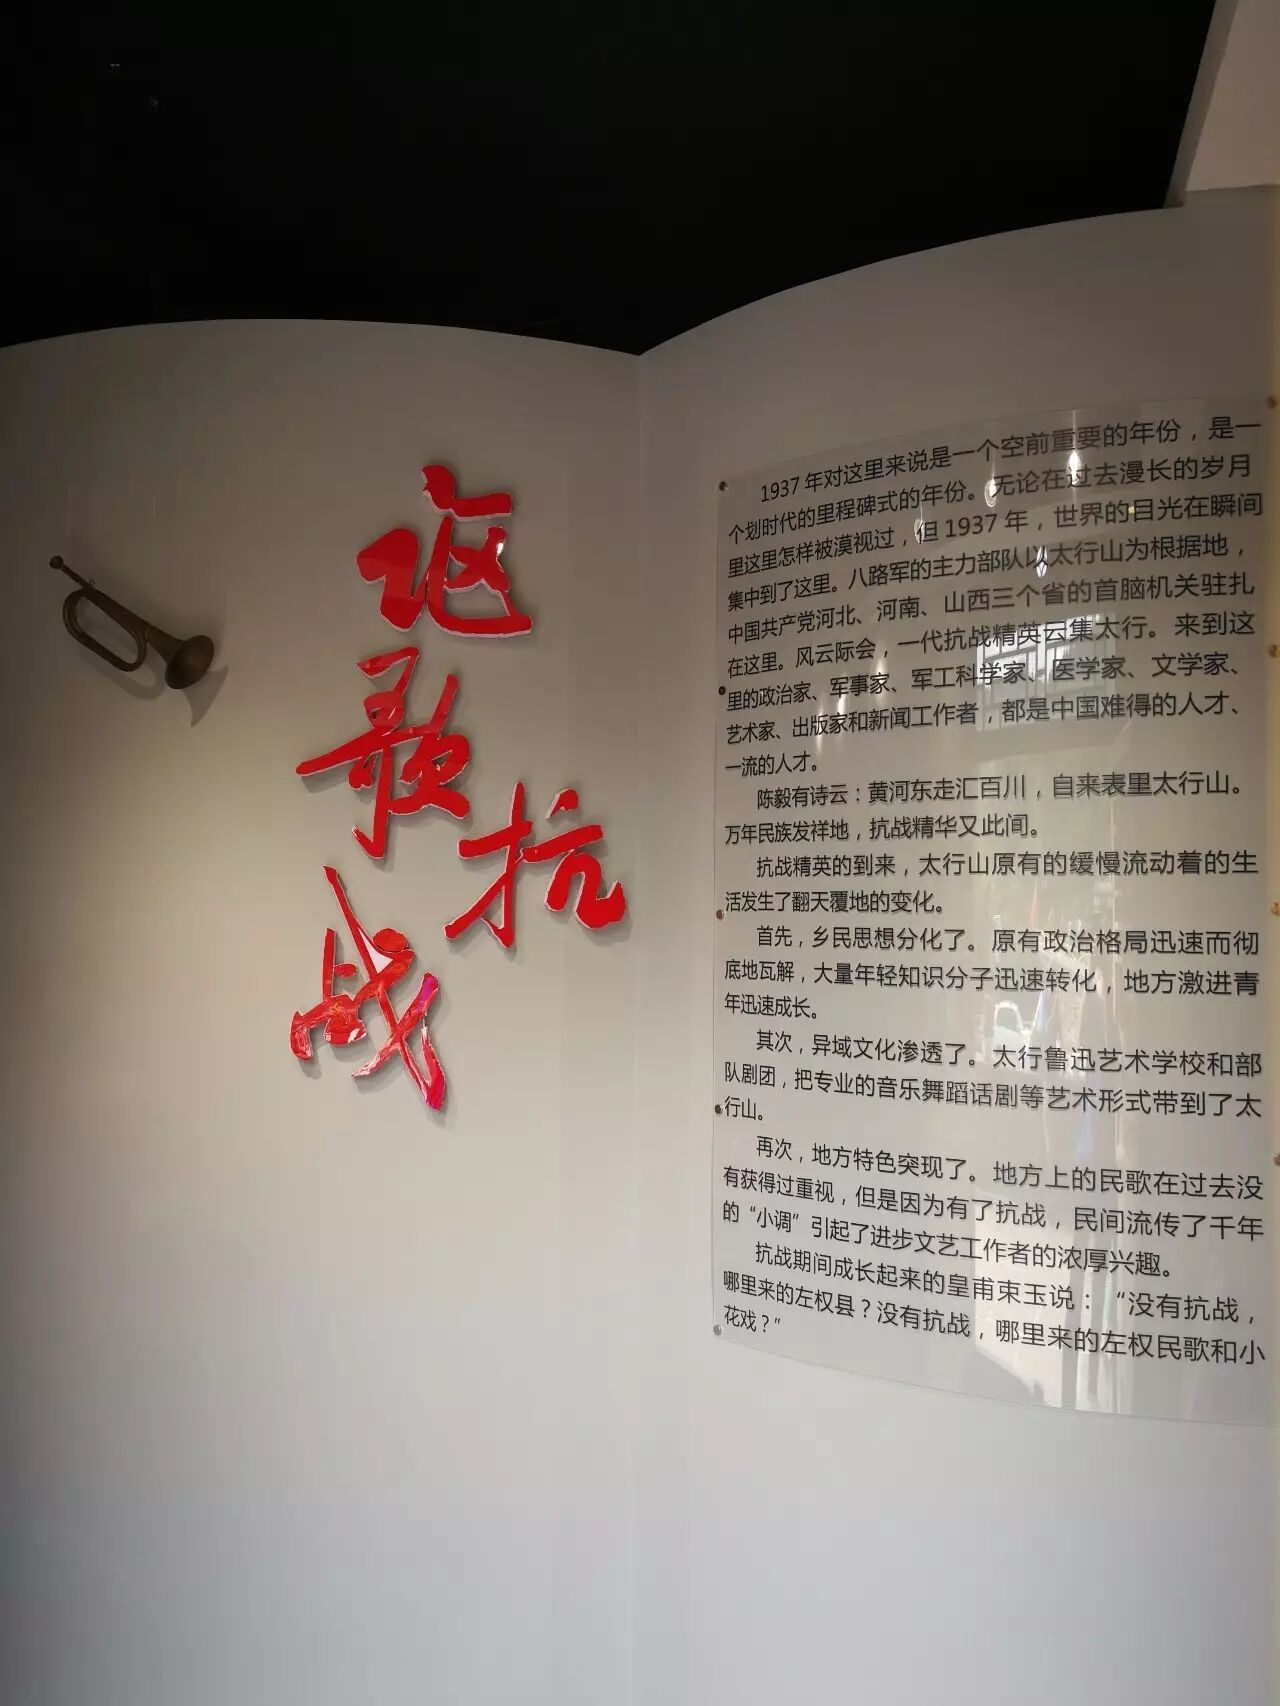 讴
歌
抗
战
1937年对这里来说是一个空前重要的年份，是一
个划时代的里程碑式的年份。无论在过去漫长的岁月
里这里怎样被漠视过，但1937年，世界的目光在瞬间
集中到了这里。八路军的主力部队以太行山为根据地，
中国共产党河北、河南、山西三个省的首脑机关驻扎
在这里。风云际会，一代抗战精英云集太行。来到这
里的政治家、军事家、军工科学家、医学家、文学家、
艺术家、出版家和新闻工作者，都是中国难得的人才、
一流的人才。
陈毅有诗云：黄河东走汇百川，自来表里太行山。
万年民族发祥地，抗战精华又此间。
抗战精英的到来，太行山原有的缓慢流动着的生
活发生了翻天覆地的变化。
首先，乡民思想分化了。原有政治格局迅速而彻
底地瓦解，大量年轻知识分子迅速转化，地方激进青
年迅速成长。
其次，异域文化渗透了。太行鲁迅艺术学校和部
队剧团，把专业的音乐舞蹈话剧等艺术形式带到了太
行山。
再次，地方特色突现了。地方上的民歌在过去没
有获得过重视，但是因为有了抗战，民间流传了千年
的“小调”引起了进步文艺工作者的浓厚兴趣。
抗战期间成长起来的皇甫束玉说：“没有抗战，
哪里来的左权县？没有抗战，哪里来的左权民歌和小
花戏？”